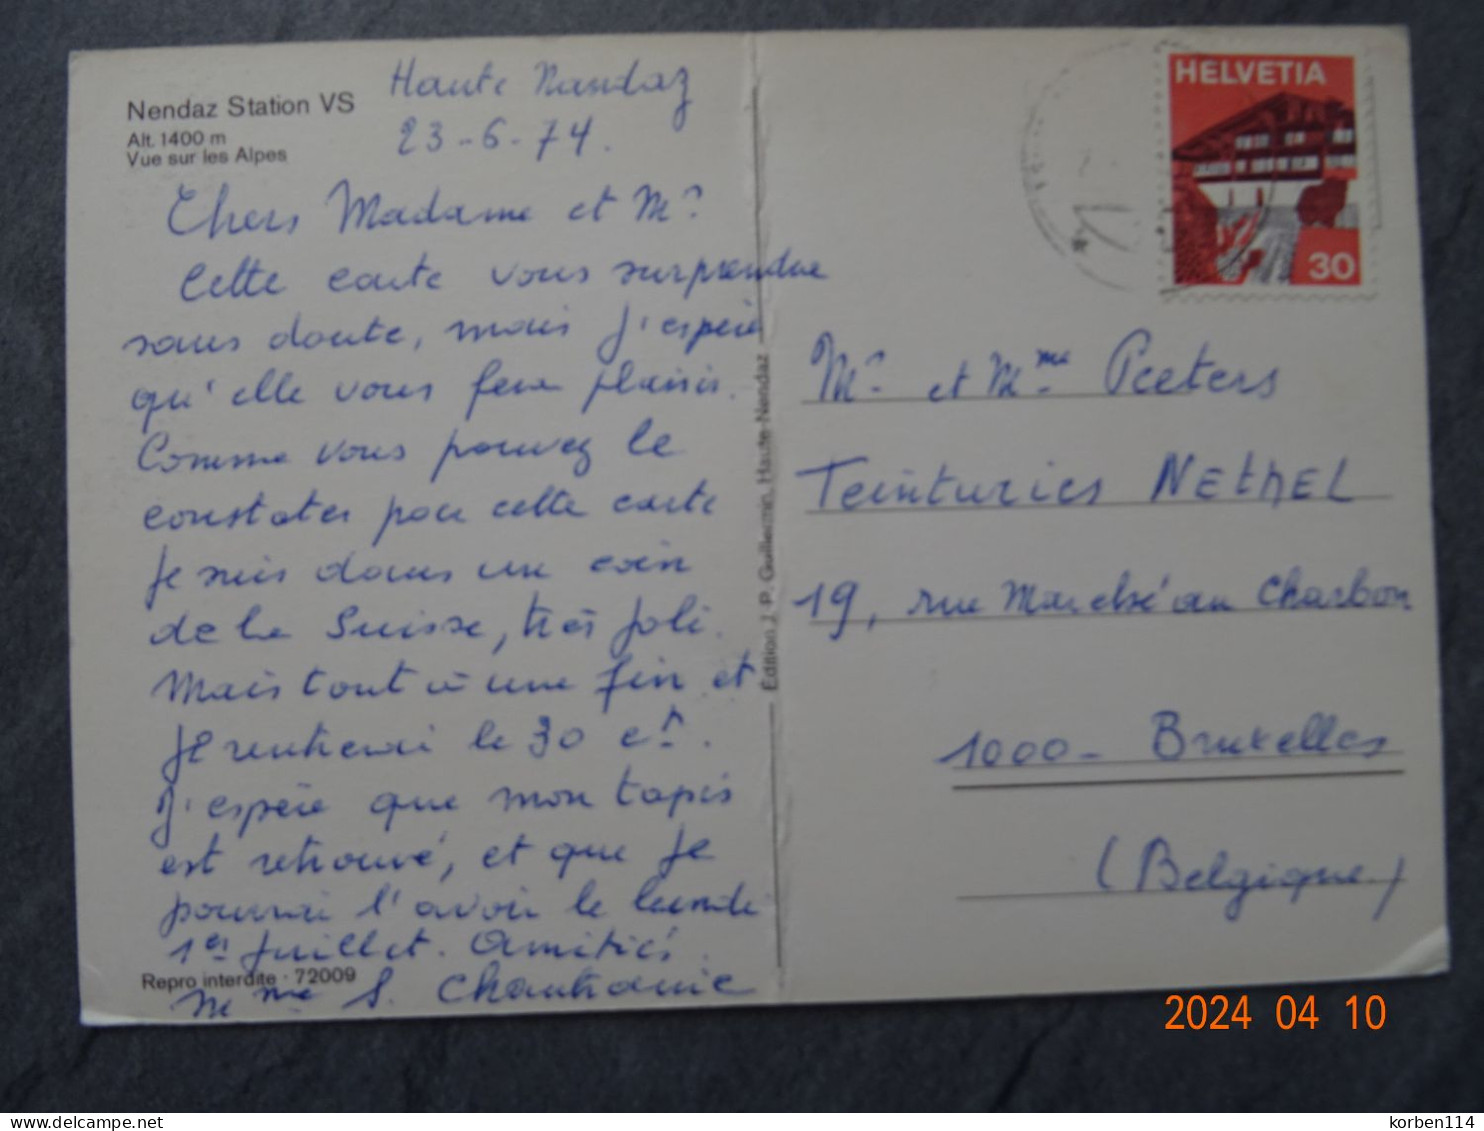 Nendaz Station VS
Alt. 1400 m
Vue sur les Alpes
Haute Nandaz
23-6-74.
Chers Madame et Mr
Cette carte vous surprendra
sans doute, mais j'espère
qu'elle vous fera plaisir.
Comme vous pouvez le
constater par cette carte
je suis dans un coin
de la Suisse, très joli.
Mais tout à une fin et
je rentrerai le 30 ct.
J'espère que mon tapis
est retrouvé, et que je
pourrai l'avoir le lundi
1er Juillet. Amitiés.
Mme S.
Repro interdite · 72009
Edition J. P. Guillermin, Haute-Nendaz
HELVETIA
30
Mr et Mme Peeters
Teinturies NETHEL
19, rue Marché au Charbon
1000- Bruxelles
(Belgique)
2024 04 10
korben114